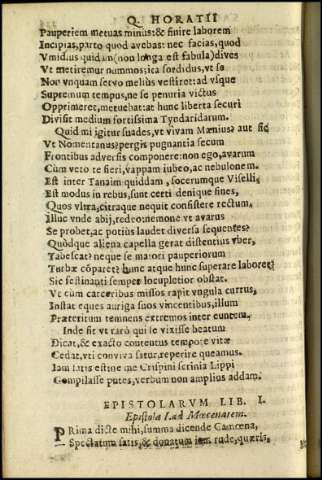 Q. HORATII
Pauperiem metuas minus: & finire laborem
Incipias, parto quod avebas: nec facias, quod
Vmidius quidam (non longa est fabula) dives
Vt metiretur nummos: ita sordidus, vt se
Non vnquam servo melius vestiret: ad vsque
Supremum tempus, ne se penuria victus
Opprimeret, metuebat: at hunc liberta securi
Divisit medium fortissima Tyndaridarum.
Quid mi igitur suades, vt vivam Mænius? aut sic
Vt Nomentanus? pergis pugnantia secum
Frontibus adversis componere: non ego, avarum
Cùm veto te fieri, vappam iubeo, ac nebulonem.
Est inter Tanaim quiddam, socerumque Viselli,
Est modus in rebus, sunt certi denique fines,
Quos vltra, citraque nequit consistere rectum.
Illuc vnde abij, redeo: nemone vt avarus
Se probet, ac potius laudet diversa sequentes?
Quòdque aliena capella gerat distentius vber,
Tabescat? neque se maiori pauperiorum
Turbæ cōparet? hunc atque hunc superare laboret?
Sic festinanti semper locupletior obstat.
Vt cùm carceribus missos rapit vngula currus,
Instat eques auriga suos vincentibus, illum
Præteritum temnens extremos inter euntem.
Inde fit vt rarò qui se vixisse beatum
Dicat, & exacto contentus tempore vitæ
Cedat, vti conviva satur, reperire queamus.
Iam satis est: ne me Crispini scrinia Lippi
Compilasse putes, verbum non amplius addam.
EPISTOLARVM LIB. I.
Epistola I. ad Mœcenatem.
Prima dicte mihi, summa dicende Camœna,
Spectatum satis, & donatum iam rude, quæris,